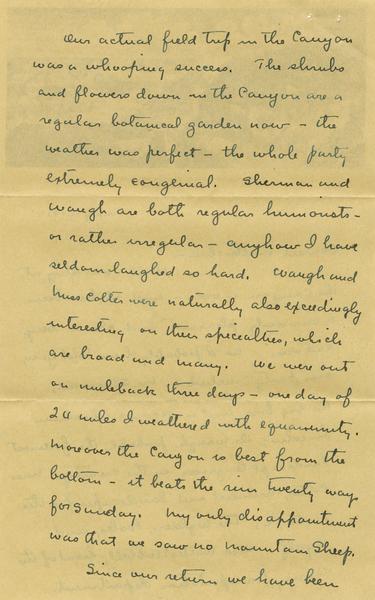 Our actual field trip in the Canyon
was a whooping success. The shrubs
and flowers down in the Canyon are a
regular botanical garden now – the
weather was perfect – the whole party
extremely congenial. Sherman and
Waugh are both regular humorists –
or rather irregular – anyhow I have
seldom laughed so hard. Waugh and
Miss Colter were naturally also exceedingly
interesting on their specialties, which
are broad and many. We were out
on muleback three days – one day of
24 miles I weathered with equanimity.
Moreover the Canyon is best from the
bottom – it beats the rim twenty ways
for Sunday. My only disappointment
was that we saw no mountain sheep.
Since our return we have been